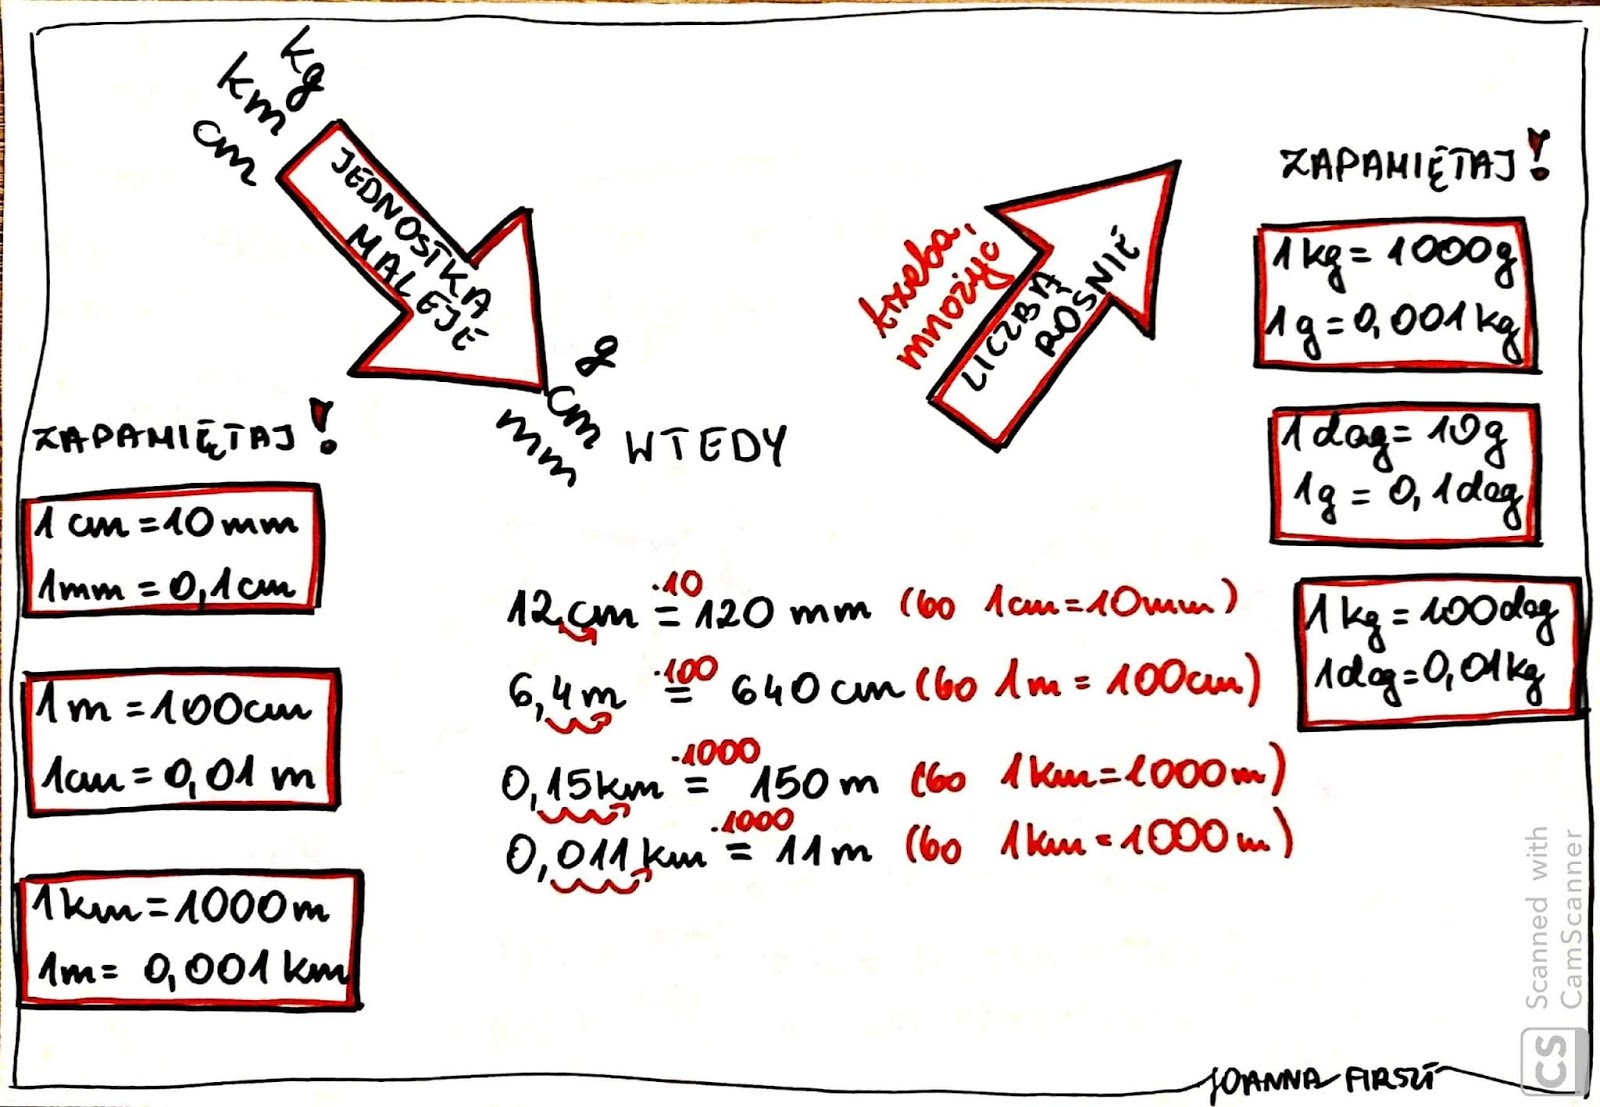 kg
km
cm
JEDNOSTKA
MALEJE
g
cm
mm
WTEDY
trzeba
mnożyć
LICZBA
ROŚNIE
ZAPAMIĘTAJ!
1 cm = 10 mm
1 mm = 0,1 cm
1 m = 100 cm
1 cm = 0,01 m
1 km = 1000 m
1 m = 0,001 km
12 cm =·10 120 mm (bo 1 cm = 10 mm)
6,4 m =·100 640 cm (bo 1 m = 100 cm)
0,15 km =·1000 150 m (bo 1 km = 1000 m)
0,011 km =·1000 11 m (bo 1 km = 1000 m)
ZAPAMIĘTAJ!
1 kg = 1000 g
1 g = 0,001 kg
1 dag = 10 g
1 g = 0,1 dag
1 kg = 100 dag
1 dag = 0,01 kg
JOANNA FIRSZT
CS Scanned with
CamScanner